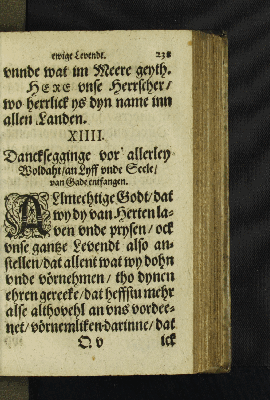 ewige Levendt. 238
vnnde wat im Meere geyth.
HERE vnse Herrscher/
wo herrlick ys dyn name inn
allen Landen.
XIIII.
Dancksegginge vor allerley
Woldaht/an Lyff vnde Seele/
van Gade entfangen.
ALlmechtige Godt/dat
wy dy van Herten la-
ven vnde prysen/ ock
vnse gantze Levendt also an-
stellen/dat allent wat wy dohn
vnde vörnehmen/ tho dynen
ehren gerecke/dat heffstu mehr
alse althovehl an vns vordee-
net/vörnemliken darinne/dat
O v ick